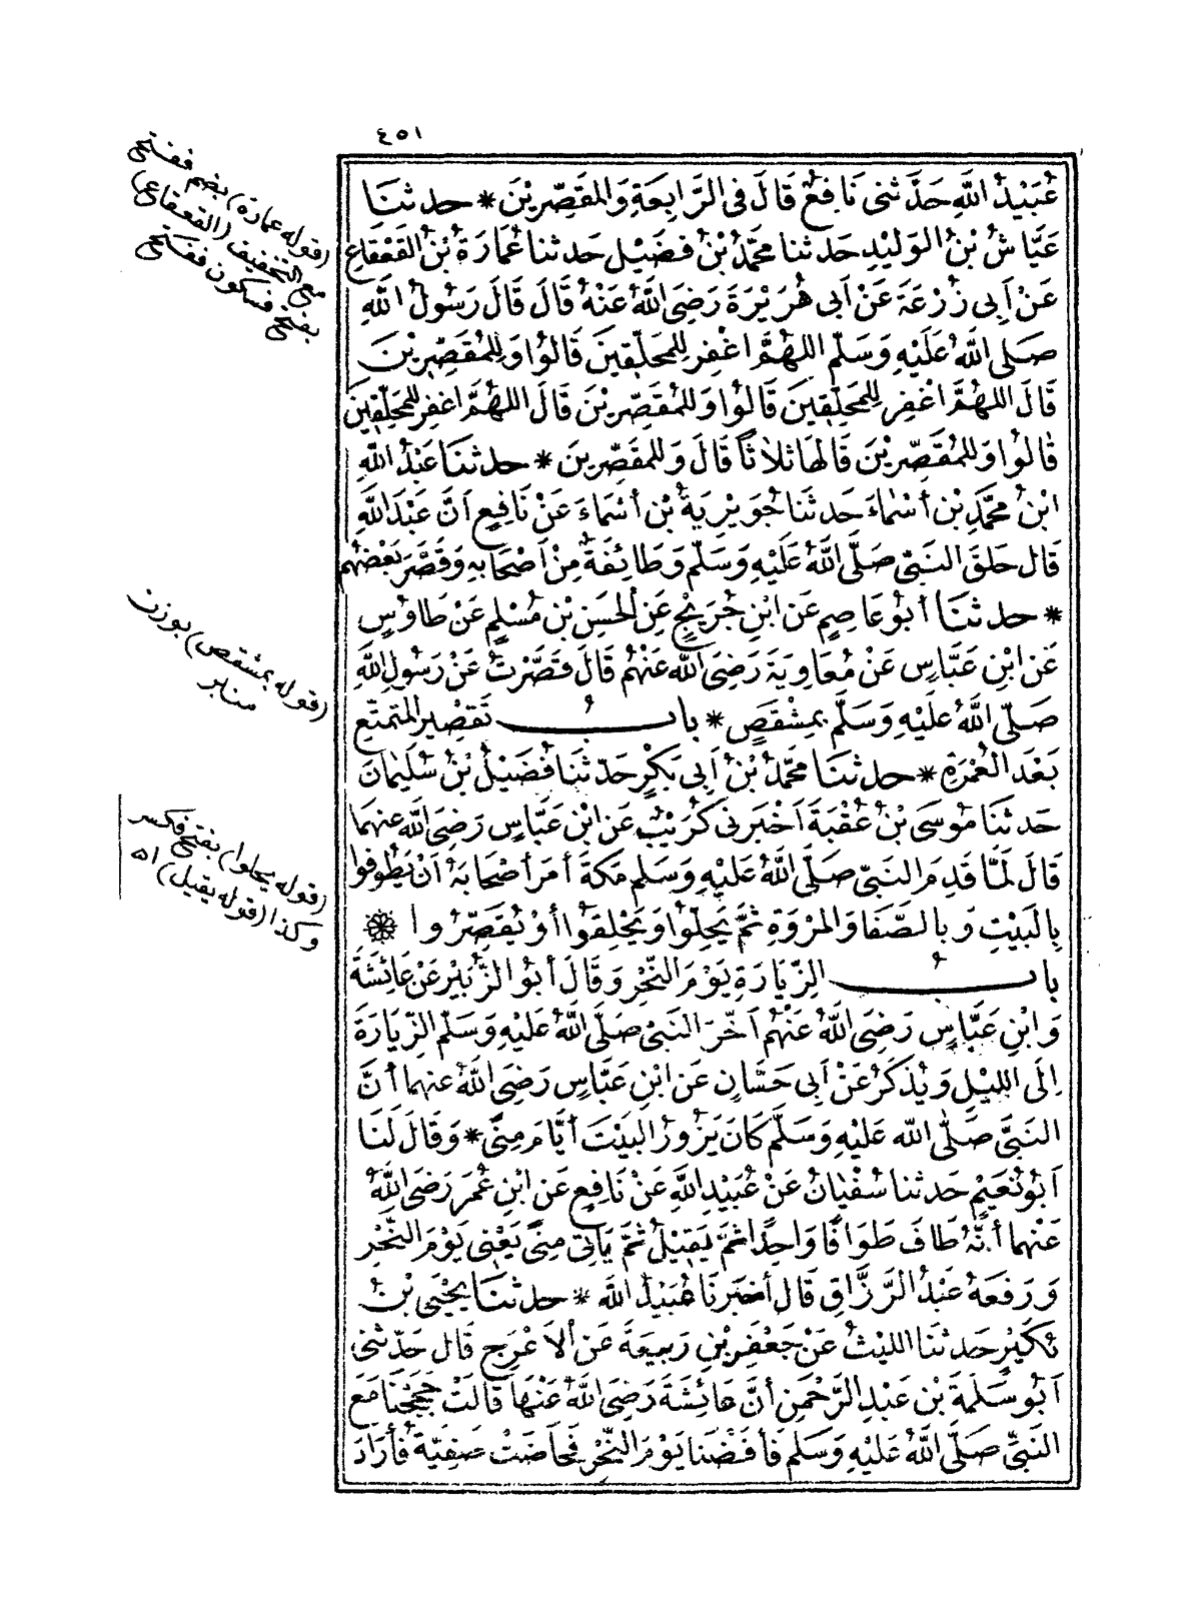 ٤٥١
عُبَيْدُ اللَّهِ حَدَّثَنِى نَافِعٌ قَالَ فِى الرَّابِعَةِ وَالمُقَصِّرِيْنَ * حدثنَا
عَيَّاشُ بْنُ الوَلِيْدِ حَدثنا مُحَمَّدُ بْنُ فُضَيْلٍ حَدثنا عُمَارَةُ بْنُ القَعْقَاعِ
عَنْ اَبِى زُرْعَةَ عَنْ اَبِى هُرَيْرَةَ رَضِىَ اللَّهُ عَنْهُ قَالَ قَالَ رَسُولُ اللَّهِ
صَلى اللَّهُ عَلَيْهِ وَسَلَّم اللهُمَّ اغْفِر لِلمُحَلّقِينَ قَالُوا وَلِلمُقَصِّرِيْنَ
قَالَ اللهُمَّ اغْفِر لِلمُحَلِّقِينَ قَالُوا وَلِلمُقَصِّرِيْنَ قَالَ اللهُمَّ اغفِر لِلمُحَلِّقِينَ
قَالُوا وَلِلمُقَصِّرِيْنَ قَالهَا ثلَاثاً قَالَ وَلِلمُقَصِّرِينَ * حدثنَا عَبْدُ اللَّهِ
ابْنُ مُحَمَّدِ بْنِ أَسْمَاءَ حَدثنَا جُوَيْرِيَةُ بْنِ أَسْمَاءَ عَنْ نَافِعٍ اَنَّ عَبْدَ اللَّهِ
قَال حَلَقَ النَّبِىّ صَلَّى اللَّهُ عَلَيْهِ وَسَلّم وَطَائِفَةٌ مِنْ اَصْحَابِهِ وَقَصَّرَ بَعْضُهُم
* حدثنَا أَبُو عَاصِمٍ عَن ابْنِ جُرَيْجٍ عَنِ الحَسَنِ بْنِ مُسْلِمٍ عَنْ طَاوُسٍ
عَنِ ابْنِ عَبَّاسٍ عَنْ مُعَاوِيَةَ رَضِىَ اللَّه عَنْهُم قَالَ قَصَّرْتُ عَنْ رَسُولِ اللَّهِ
صَلّى اللَّهُ عَلَيْهِ وَسَلَّم بِمِشْقَصٍ * بابُ تَقصِيرِ المتمتِّعِ
بَعْدَ العُمْرَةِ * حدثنَا مُحَمَّدُ بْنُ اَبِى بَكْرٍ حَدثنَا فُضَيْلُ بْنُ سُلَيْمَانَ
حَدثنَا مُوسَى بْنُ عُقْبَةَ اَخْبَرَنِى كُرَيْبٌ عَنِ ابْنِ عَبَّاسٍ رَضِىَ اللَّه عنهمَا
قَالَ لَمَّا قَدِمَ النَّبِىّ صَلَّى اللَّهُ عَلَيْهِ وَسَلم مَكةَ أَمَرَ أَصْحَابَهُ اَنْ يَطُوفُوا
بِالبَيْتِ وَبِالصَّفَا وَالمَرْوَةِ ثُمَّ يَحِلّوُا وَيَحْلِقُوا أَوْ يُقَصِّرُوا
بابُ الزِّيَارَةِ يَوْمَ النَّحْرِ وَقَالَ أَبُو الزُّبَيْرِ عَنْ عَائِشَةَ
وَابْنِ عَبَّاسٍ رَضِىَ اللَّهُ عَنْهُمْ اَخَّرَ النَّبِىّ صَلَّى اللَّهُ عَلَيْهِ وَسَلّم الزِّيَارَةَ
اِلَى اللَّيْلِ وَيُذكَرُ عَنْ اَبِى حَسَّانٍ عَن ابْنِ عَبَّاسٍ رَضِىَ اللَّهُ عنهما أَنَّ
النَّبِىَّ صَلَّى اللَّه عَلَيْهِ وَسَلّم كَانَ يَزُورُ البَيْتَ أَيَّامَ مِنًى * وَقَالَ لَنَا
اَبُو نُعَيْمٍ حَدثنا سُفْيَانُ عَنْ عُبَيْدِ اللَّهِ عَنْ نَافِعٍ عَنِ ابْنِ عُمَرَ رَضَىَ اللَّهُ
عَنْهما أَنَّهُ طَافَ طَوَافًا وَاحِدًا ثُمَّ يَقِيْلُ ثُمَّ يَأتِى مِنًى يَعْنِى يَوْمَ النَّحْرِ
وَرَفَعَهُ عَبْدُ الرَّزَّاقِ قَالَ أَخبَرنَا عُبَيْدُ اللَّهِ * حدثنَا يَحْيَى بْنُ
بُكَيْرٍ حَدثنَا اللَّيْثُ عَنْ جَعْفَرِ بْنِ رَبِيعَةَ عَنِ الاَعْرَجِ قَالَ حَدّثنى
اَبُو سَلَمَةَ بْنِ عَبْدِ الرَّحْمنِ أَنَّ عَائِشَةَ رَضِىَ اللَّهُ عَنْهَا قَالَتْ حَجَجْنَا مَعَ
النَّبِىِّ صَلَّى اللَّهُ عَلَيْهِ وَسَلّم فَأَفَضْنَا يَوْمَ النَّحْرِ فَحَاضَتْ صَفِيَّةُ فَأَرَادَ
(قوله عمارة) بضم ففتح
مع التخفيف (القعقاع)
بفتح فسكون ففتح
(قوله بمشقص) بوزن
منبر
(قوله يحلوا) بفتح فكسر
وكذا (قوله يقيل) اه